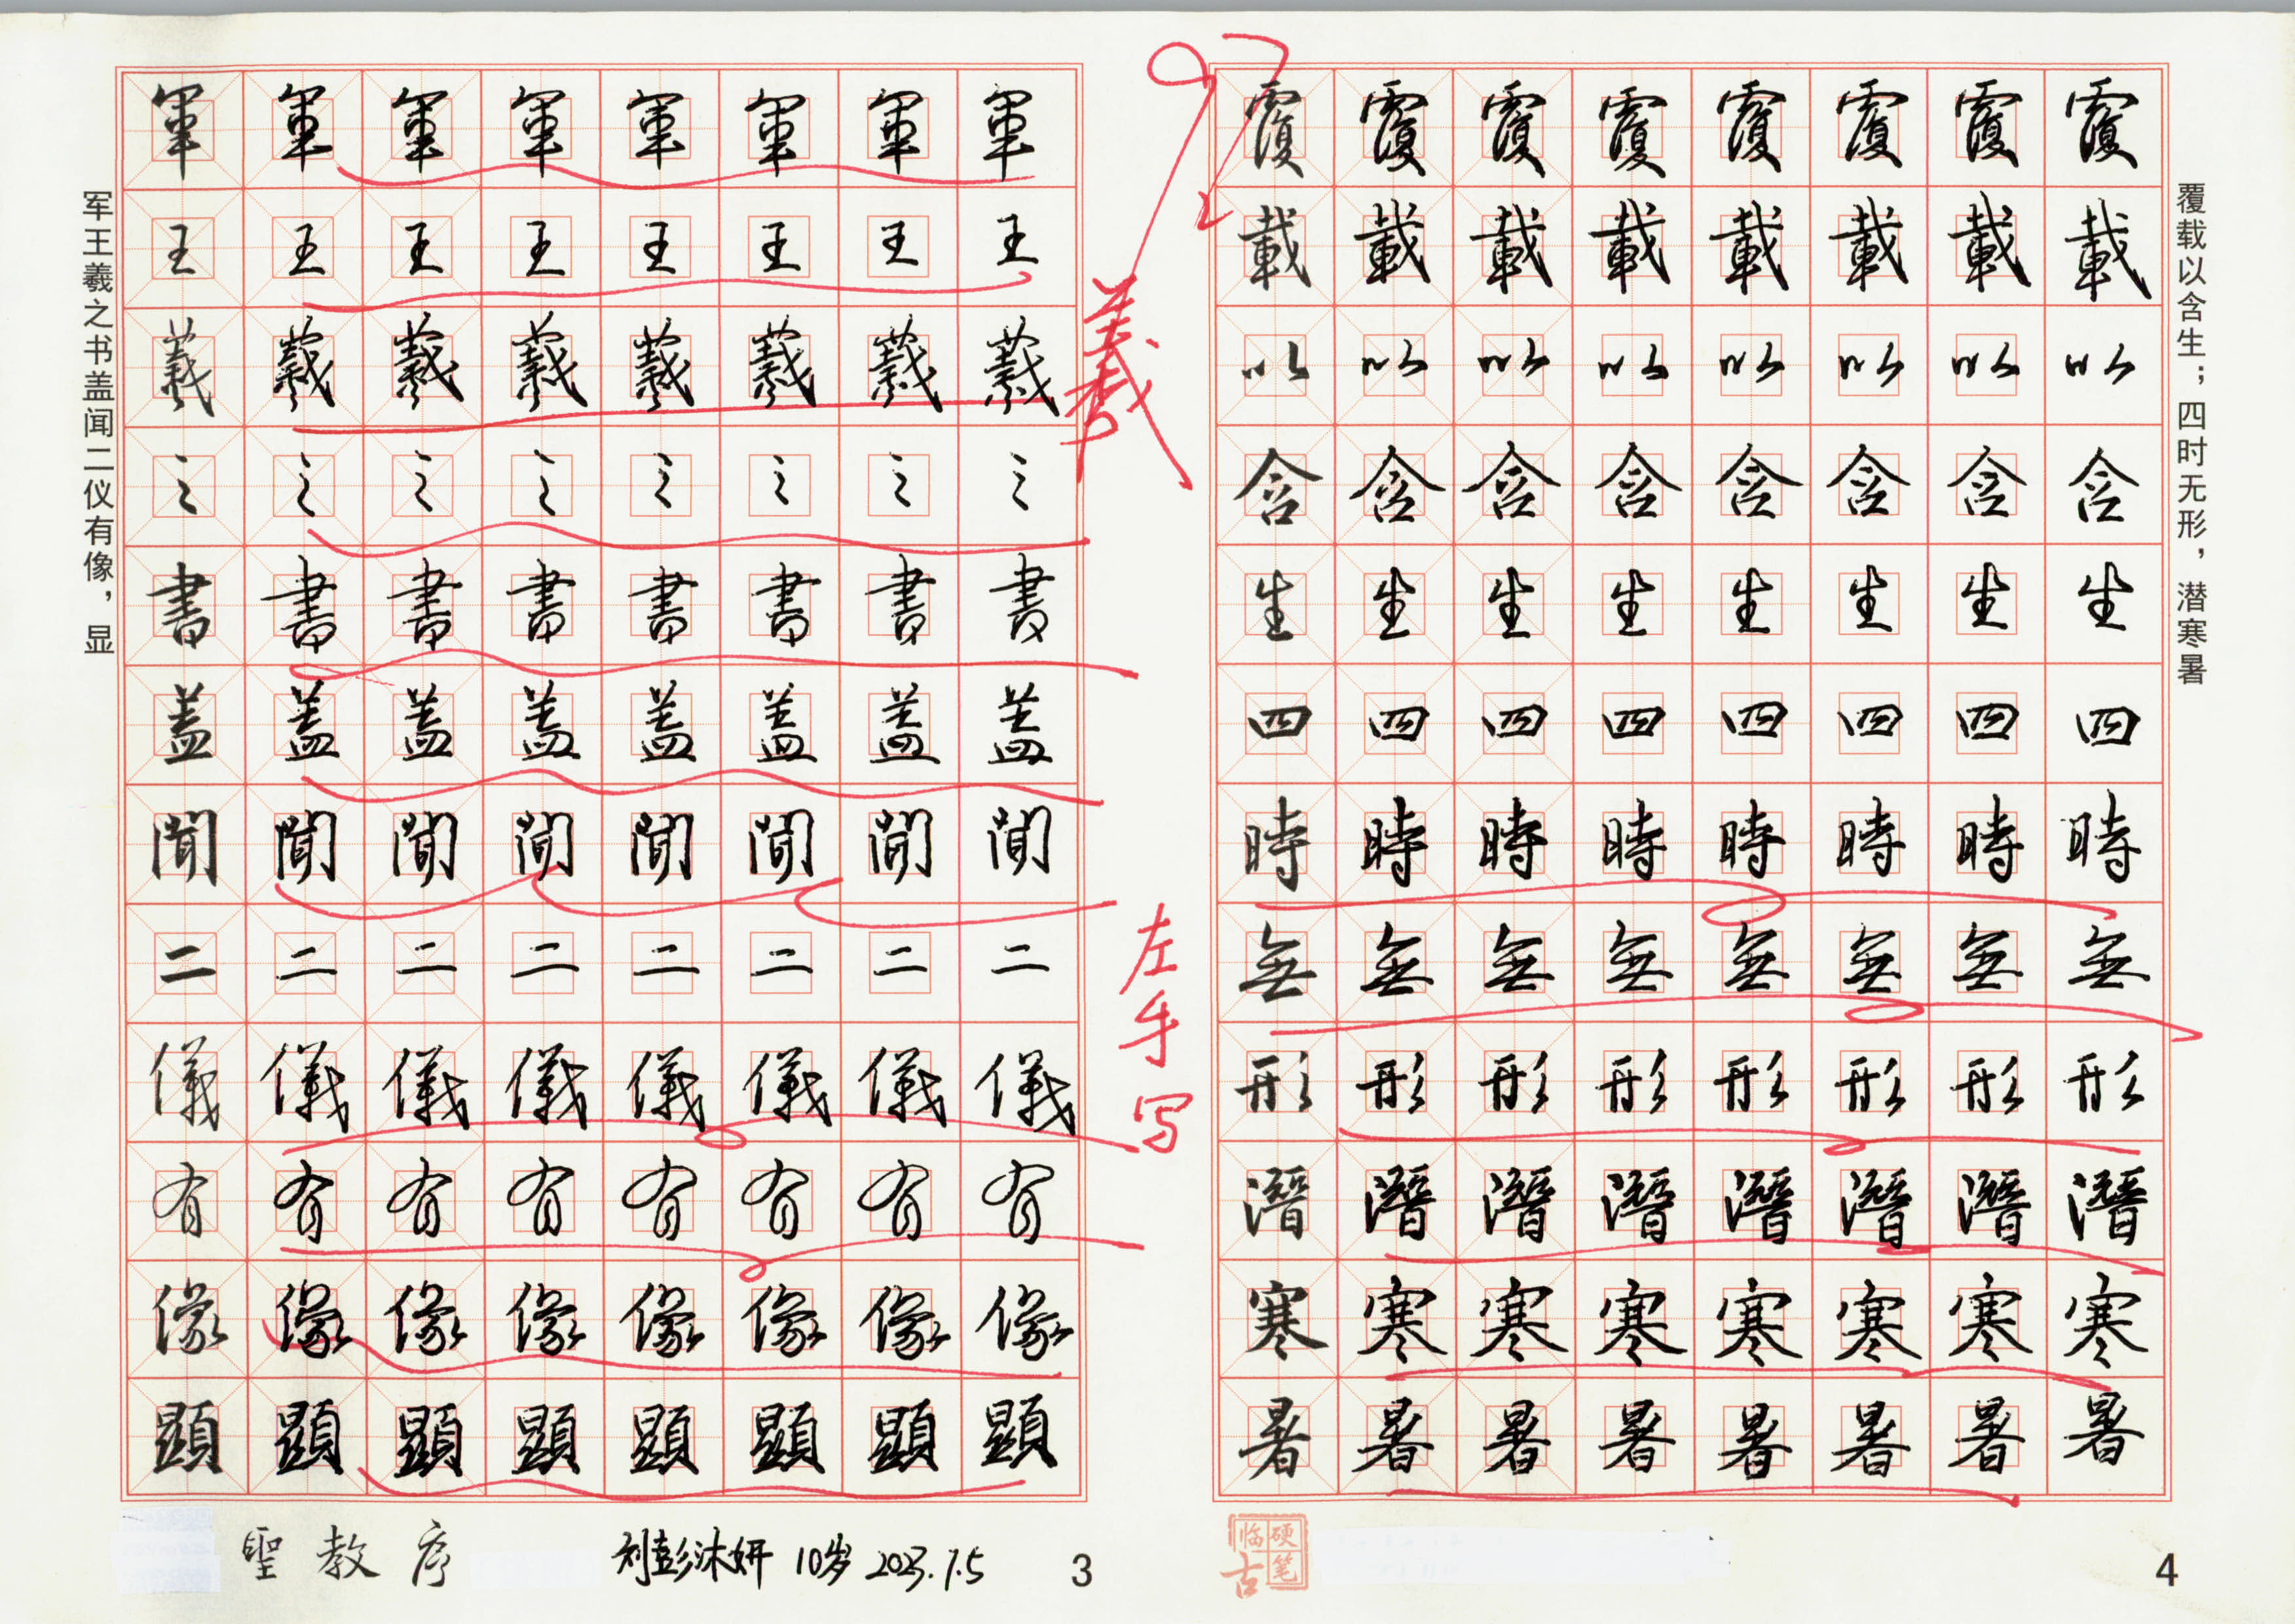 军王羲之书盖闻二仪有像，显
軍軍軍軍軍軍軍軍
王王王王王王王王
羲羲羲羲羲羲羲羲
之之之之之之之之
書書書書書書書書
盖盖盖盖盖盖盖盖
聞聞聞聞聞聞聞聞
二二二二二二二二
儀儀儀儀儀儀儀儀
有有有有有有有有
像像像像像像像像
顯顯顯顯顯顯顯顯
聖教序
刘彭沐妍 10岁 2023.7.5
3
羲
左手写
覆覆覆覆覆覆覆覆
載載載載載載載載
以以以以以以以以
含含含含含含含含
生生生生生生生生
四四四四四四四四
時時時時時時時時
無無無無無無無無
形形形形形形形形
潛潛潛潛潛潛潛潛
寒寒寒寒寒寒寒寒
暑暑暑暑暑暑暑暑
覆载以含生；四时无形，潜寒暑
硬笔临古
4